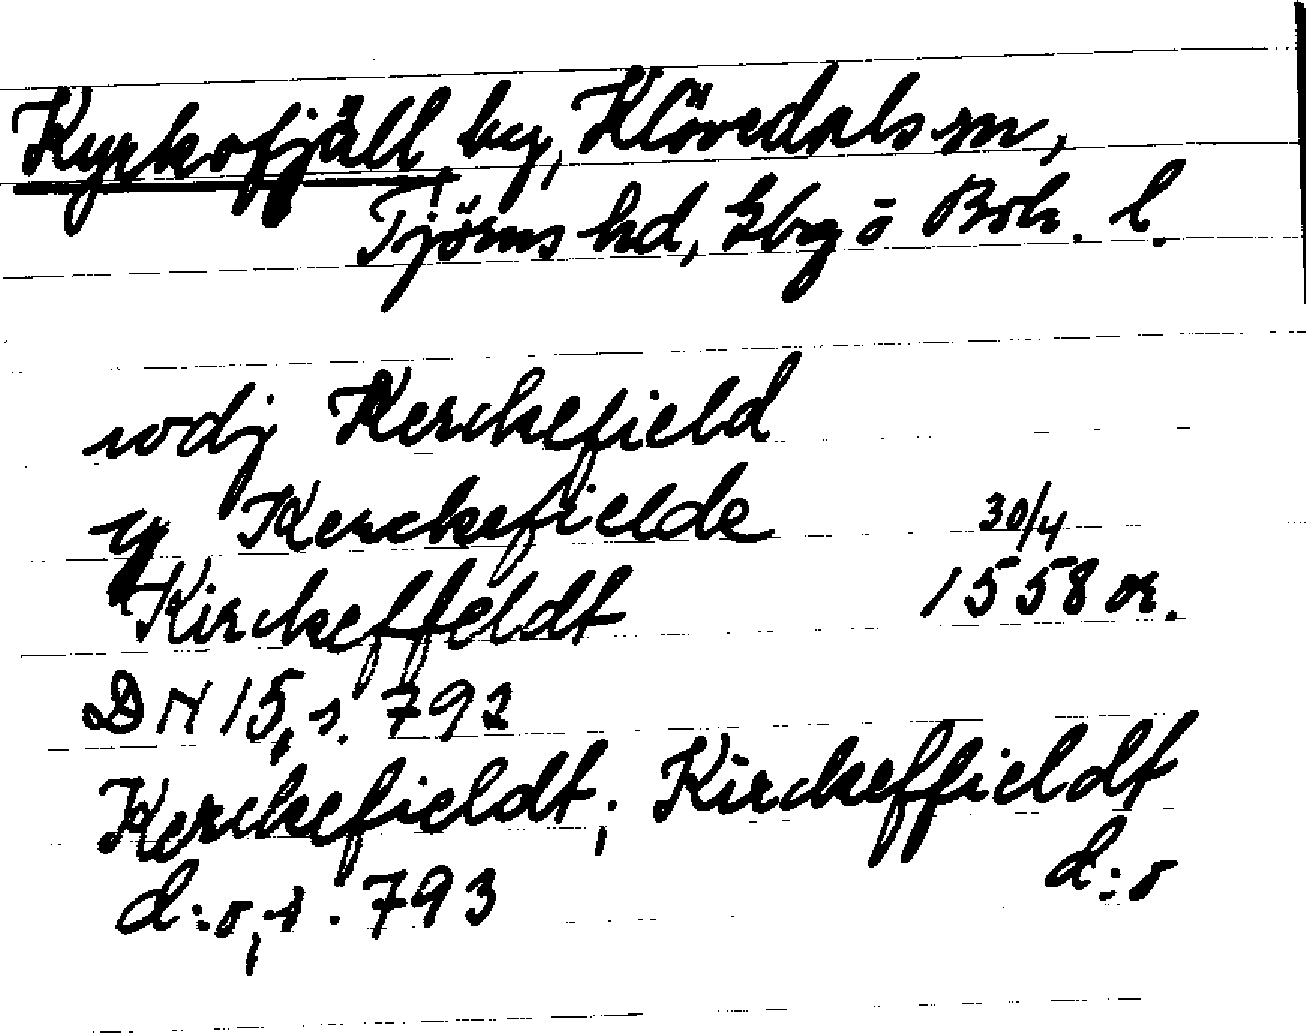 Kyrkofjäll by, Klövedals sn,
Tjörns hd, Gbg o Boh. l.
wdj Kerckefield
y Kerckefielde 30/4
Kirckeffeldt 1558 or.
DN 15, s. 792
Kerckefieldt; Kirckeffieldt
d:o, s. 793 d:o